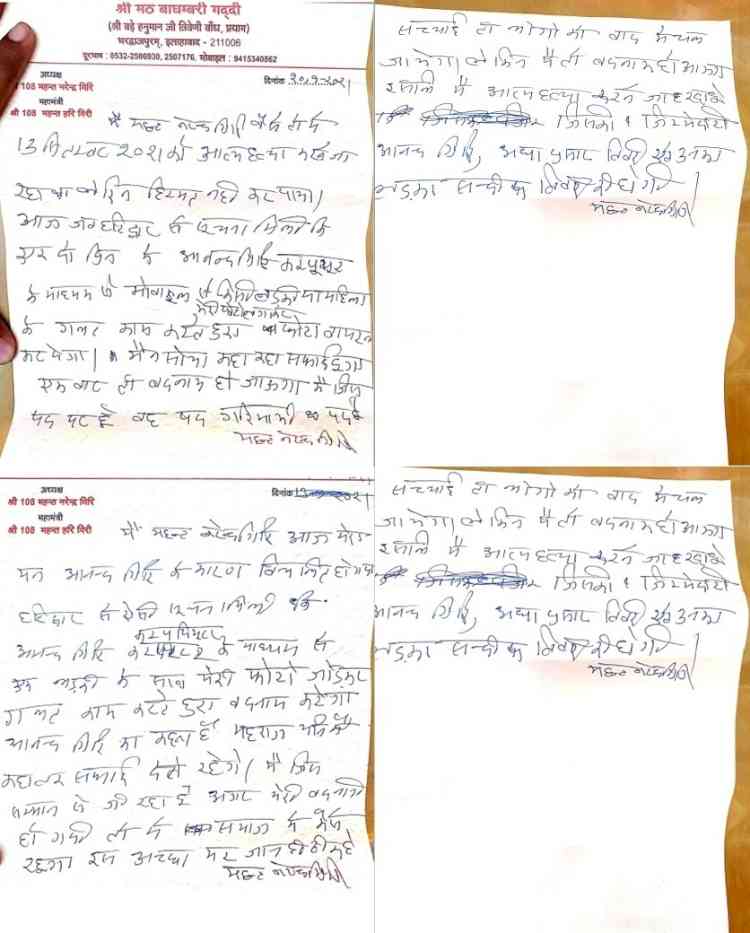 श्री मठ बाघम्बरी गद्दी
(श्री बड़े हनुमान जी त्रिवेणी बाँध, प्रयाग)
भरद्वाजपुरम्, इलाहाबाद - 211006
दूरभाष : 0532-2506930, 2507176, मोबाइल : 9415340562
अध्यक्ष
108 महन्त नरेन्द्र गिरि
महामंत्री
श्री 108 महन्त हरि गिरी
दिनांक
मै महन्त नरेन्द्र गिरि वैसे तो मै
13 सितम्बर 2021 को आत्महत्या करने जा
रहा था लेकिन हिम्मत नही कर पाया।
आज जब हरिद्वार से सूचना मिली कि
एक दो दिन मे आनन्द गिरि कम्प्यूटर
के माध्यम से मोबाइल से किसी लड़की या महिला
मेरी फोटो लगाकर
के गलत काम करते हुए फोटो वायरल
कर देगा। मैने सोचा कहा तक सफाई दूंगा
एक बार तो बदनाम हो जाऊगा मै जिस
पद पर हूँ वह पद गरिमामयी पद है
महन्त नरेन्द्र गिरि
सच्चाई तो लोगो को बाद मे चल
जायेगा लेकिन मै तो बदनाम हो जाऊगा
इसलिए मै आत्महत्या करने जा रहा हूँ
जिसकी जिम्मेदारी
आनन्द गिरि, आद्या प्रसाद तिवारी एवं उनका
लड़का सन्दीप तिवारी की होगी
महन्त नरेन्द्र गिरि
अध्यक्ष
श्री 108 महन्त नरेन्द्र गिरि
महामंत्री
श्री 108 महन्त हरि गिरी
दिनांक
मै महन्त नरेन्द्र गिरि आज मेरा
मन आनन्द गिरि के कारण विचलित हो गया
हरिद्वार से ऐसी सूचना मिली कि
कम्प्यूटर
आनन्द गिरि के माध्यम से
एक लड़की के साथ मेरी फोटो जोड़कर
गलत काम करते हुए बदनाम करेगा
आनन्द गिरि का कहना है महाराज यानि मै
कहा तक सफाई देते रहेगे। मै जिस
सम्मान से जी रहा हूँ अगर मेरी बदनामी
हो गयी तो मै समाज मे कैसे
रहूगा इससे अच्छा मर जाना ही ठीक है
महन्त नरेन्द्र गिरि
सच्चाई तो लोगो को बाद मे चल
जायेगा लेकिन मै तो बदनाम हो जाऊगा
इसलिए मै आत्महत्या करने जा रहा हूँ
जिसकी जिम्मेदारी
आनन्द गिरि, आद्या प्रसाद तिवारी एवं उनका
लड़का सन्दीप तिवारी की होगी
महन्त नरेन्द्र गिरि